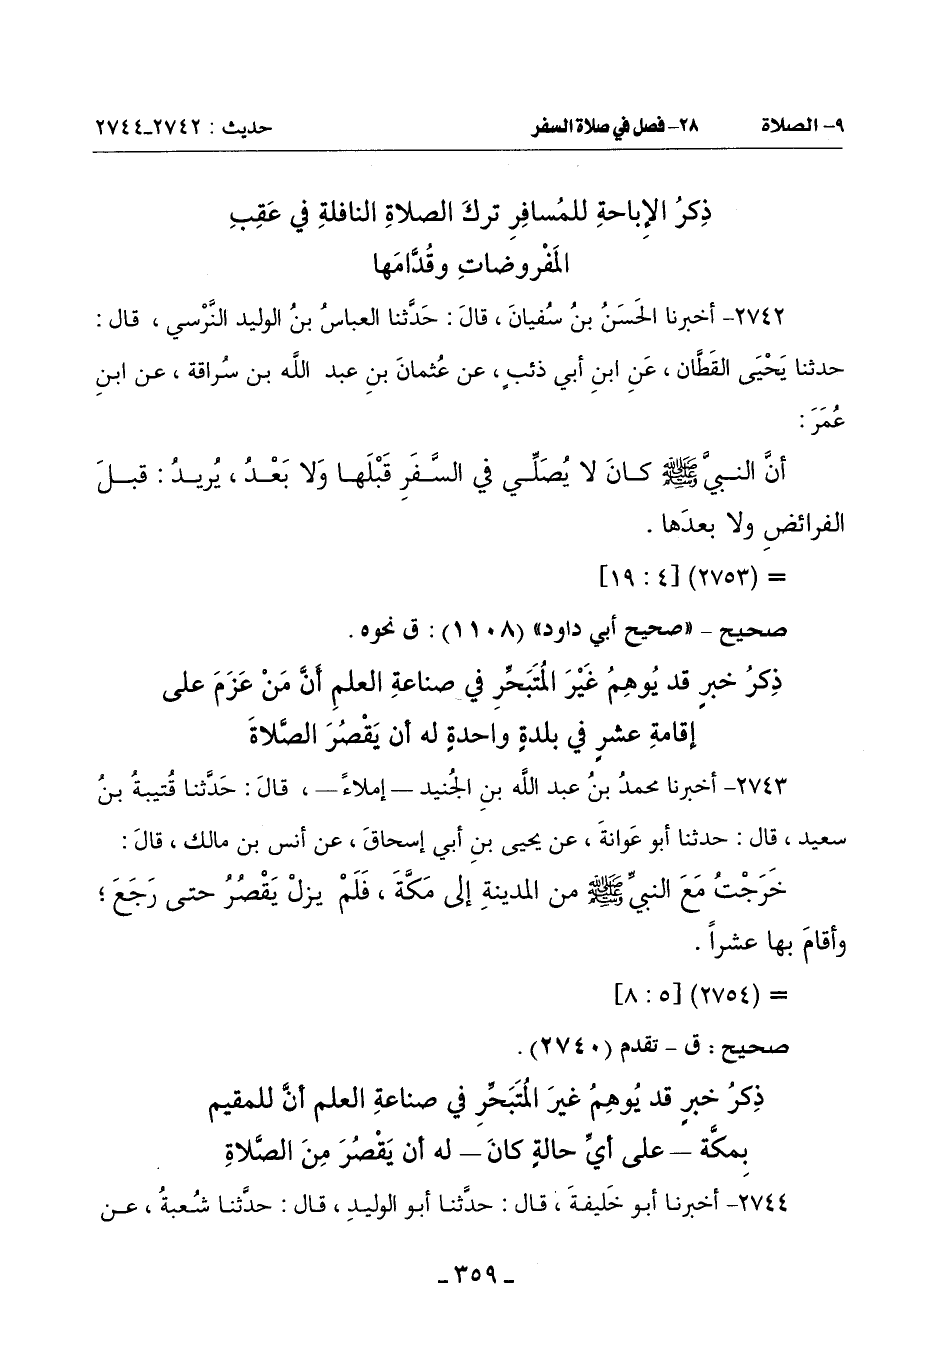 ٩- الصلاة ٢٨- فصل في صلاة السفر حديث : ٢٧٤٢-٢٧٤٤
ذِكرُ الإباحةِ للمُسافِرِ تركَ الصلاةِ النافلةِ في عَقِبِ
المَفْروضاتِ وقُدَّامَها
٢٧٤٢- أخبرنا الحَسَنُ بنُ سُفيانَ ، قالَ : حَدَّثنا العباسُ بنُ الوليد النَّرْسي ، قال :
حدثنا يَحْيَى القَطَّان ، عَنِ ابنِ أبي ذئبٍ ، عن عُثمانَ بنِ عبد اللَّه بن سُراقة ، عن ابنِ
عُمَرَ :
أنَّ النبيَّ ﷺ كانَ لا يُصَلِّي في السَّفَرِ قَبْلَها وَلا بَعْدُ ، يُريدُ : قبلَ
الفرائضِ ولا بعدَها .
= (٢٧٥٣) [٤ : ١٩]
صحيح - «صحيح أبي داود» (١١٠٨) : ق نحوه .
ذِكرُ خبرٍ قد يُوهِمُ غَيْرَ المُتَبَحِّرِ في صناعةِ العلمِ أَنَّ مَنْ عَزَمَ على
إقامةِ عشرٍ في بلدةٍ واحدةٍ له أن يَقْصُرَ الصَّلاةَ
٢٧٤٣- أخبرنا محمدُ بنُ عبد اللَّه بنِ الجُنيد — إملاءً — ، قالَ : حَدَّثنا قُتيبةُ بنُ
سعيد ، قال : حدثنا أبو عَوانةَ ، عن يحيى بنِ أبي إسحاقَ ، عن أنس بن مالك ، قالَ :
خَرَجْتُ مَعَ النبيِّ ﷺ من المدينةِ إلى مَكَّةَ ، فَلَمْ يزلْ يَقْصُرُ حتى رَجَعَ ؛
وأقامَ بها عشراً .
= (٢٧٥٤) [٥ : ٨]
صحيح : ق - تقدم (٢٧٤٠) .
ذِكرُ خبرٍ قد يُوهِمُ غيرَ المُتَبَحِّرِ في صناعةِ العلم أنَّ للمقيم
بِمكَّة — على أيِّ حالةٍ كانَ — له أن يَقْصُرَ مِنَ الصَّلاةِ
٢٧٤٤- أخبرنا أبو خَليفةَ ، قال : حدَّثنا أبو الوليدِ ، قال : حدَّثنا شُعبةُ ، عن
- ٣٥٩ -